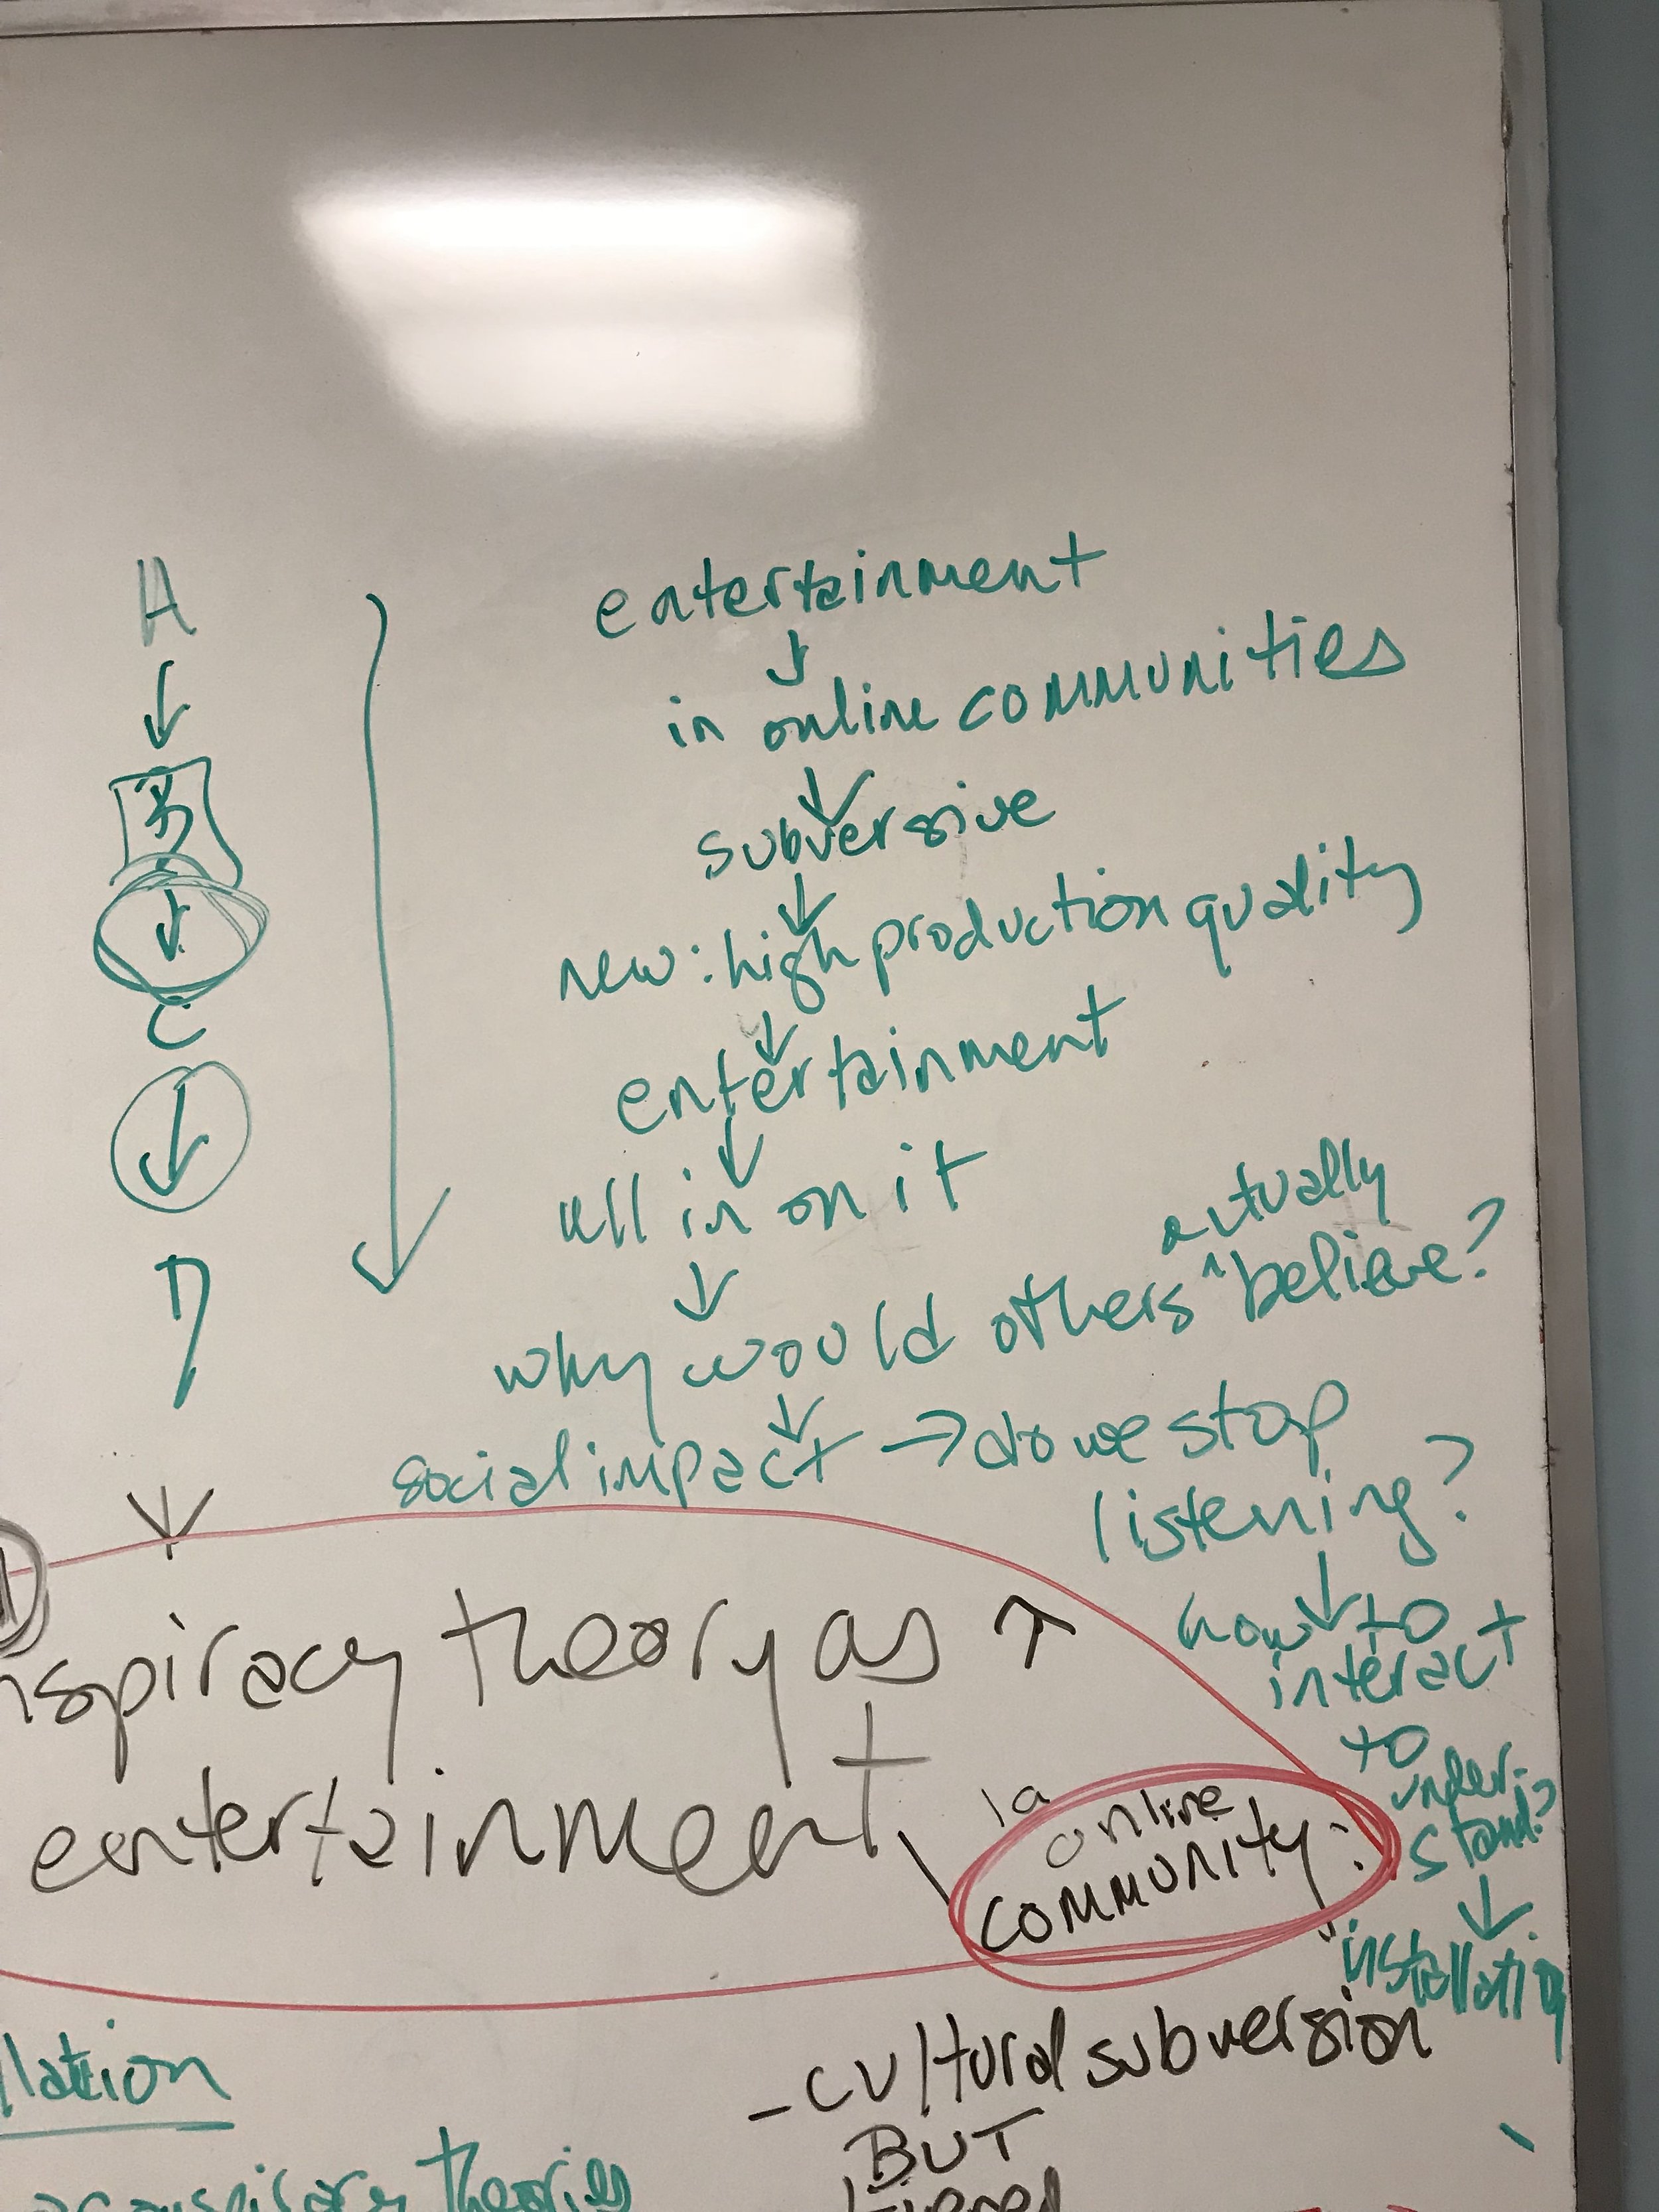 A
↓
B
↓
C
↓
D
entertainment
↓
in online communities
↓
subversive
↓
new: high production quality
↓
entertainment
↓
all in on it
↓
actually
why would others ^ believe?
↓
social impact → do we stop
listening?
↓
how to
interact
to
under-
stand?
↓
installation
↓
nspiracy theory as ↑
entertainment
online
community:
-cultural subversion
BUT
llation
conspiracy theories